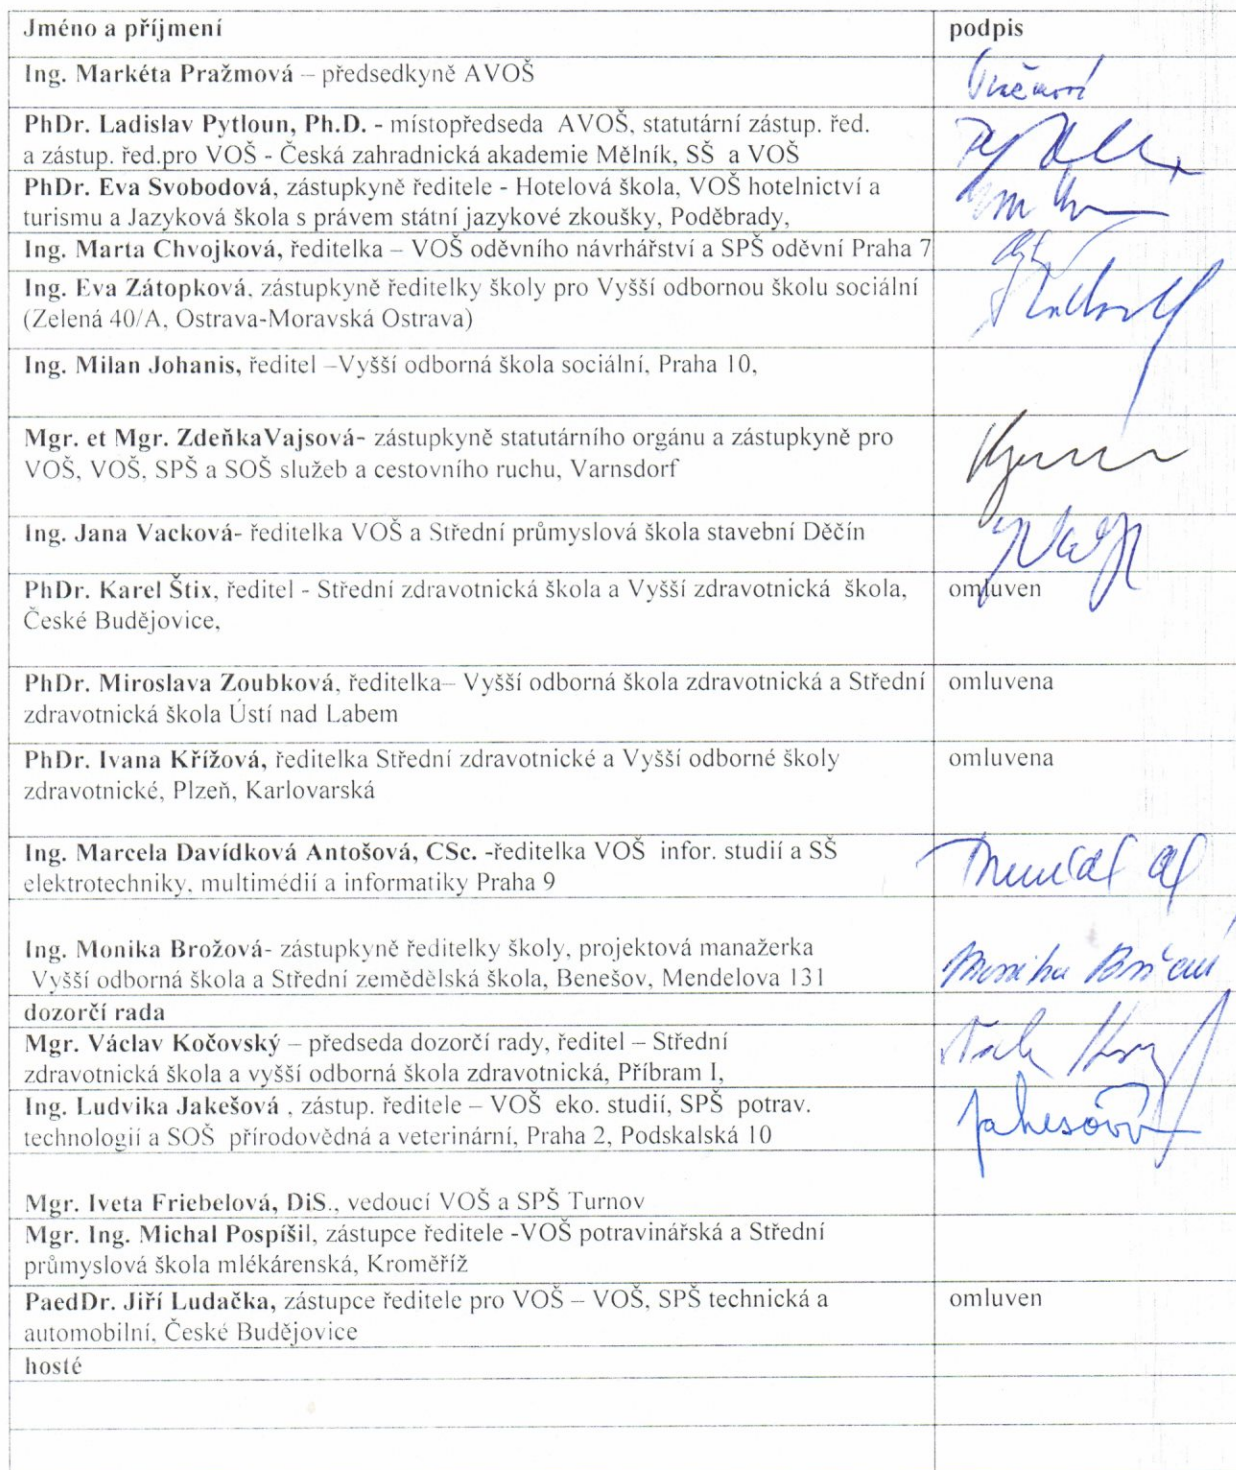 Jméno a příjmení podpis
Ing. Markéta Pražmová – předsedkyně AVOŠ
PhDr. Ladislav Pytloun, Ph.D. - místopředseda AVOŠ, statutární zástup. řed.
a zástup. řed.pro VOŠ - Česká zahradnická akademie Mělník, SŠ a VOŠ
PhDr. Eva Svobodová, zástupkyně ředitele - Hotelová škola, VOŠ hotelnictví a
turismu a Jazyková škola s právem státní jazykové zkoušky, Poděbrady,
Ing. Marta Chvojková, ředitelka – VOŠ oděvního návrhářství a SPŠ oděvní Praha 7
Ing. Eva Zátopková, zástupkyně ředitelky školy pro Vyšší odbornou školu sociální
(Zelená 40/A, Ostrava-Moravská Ostrava)
Ing. Milan Johanis, ředitel –Vyšší odborná škola sociální, Praha 10,
Mgr. et Mgr. ZdeňkaVajsová- zástupkyně statutárního orgánu a zástupkyně pro
VOŠ, VOŠ, SPŠ a SOŠ služeb a cestovního ruchu, Varnsdorf
Ing. Jana Vacková- ředitelka VOŠ a Střední průmyslová škola stavební Děčín
PhDr. Karel Štix, ředitel - Střední zdravotnická škola a Vyšší zdravotnická škola, omluven
České Budějovice,
PhDr. Miroslava Zoubková, ředitelka– Vyšší odborná škola zdravotnická a Střední omluvena
zdravotnická škola Ústí nad Labem
PhDr. Ivana Křížová, ředitelka Střední zdravotnické a Vyšší odborné školy omluvena
zdravotnické, Plzeň, Karlovarská
Ing. Marcela Davídková Antošová, CSc. -ředitelka VOŠ infor. studií a SŠ
elektrotechniky, multimédií a informatiky Praha 9
Ing. Monika Brožová- zástupkyně ředitelky školy, projektová manažerka
Vyšší odborná škola a Střední zemědělská škola, Benešov, Mendelova 131
dozorčí rada
Mgr. Václav Kočovský – předseda dozorčí rady, ředitel – Střední
zdravotnická škola a vyšší odborná škola zdravotnická, Příbram I,
Ing. Ludvika Jakešová , zástup. ředitele – VOŠ eko. studií, SPŠ potrav. Jakesová
technologií a SOŠ přírodovědná a veterinární, Praha 2, Podskalská 10
Mgr. Iveta Friebelová, DiS., vedoucí VOŠ a SPŠ Turnov
Mgr. Ing. Michal Pospíšil, zástupce ředitele -VOŠ potravinářská a Střední
průmyslová škola mlékárenská, Kroměříž
PaedDr. Jiří Ludačka, zástupce ředitele pro VOŠ – VOŠ, SPŠ technická a omluven
automobilní, České Budějovice
hosté